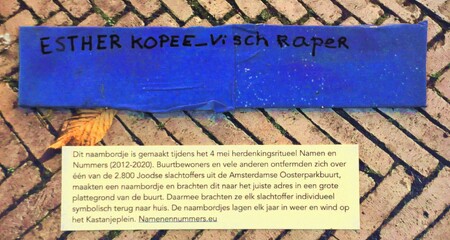 ESTHER KOPEE_Visch Raper
Dit naambordje is gemaakt tijdens het 4 mei herdenkingsritueel Namen en
Nummers (2012-2020). Buurtbewoners en vele anderen ontfermden zich over
één van de 2.800 Joodse slachtoffers uit de Amsterdamse Oosterparkbuurt,
maakten een naambordje en brachten dit naar het juiste adres in een grote
plattegrond van de buurt. Daarmee brachten ze elk slachtoffer individueel
symbolisch terug naar huis. De naambordjes lagen elk jaar in weer en wind op
het Kastanjeplein. Namenennummers.eu